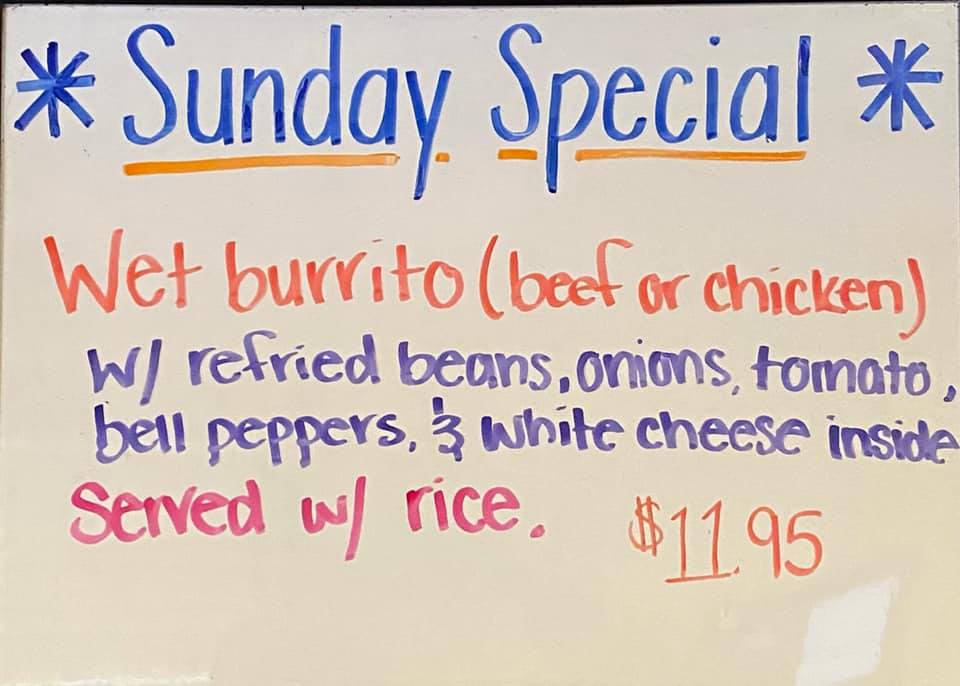 * Sunday Special *
Wet burrito (beef or chicken)
w/ refried beans, onions, tomato,
bell peppers, & white cheese inside
Served w/ rice. $11.95